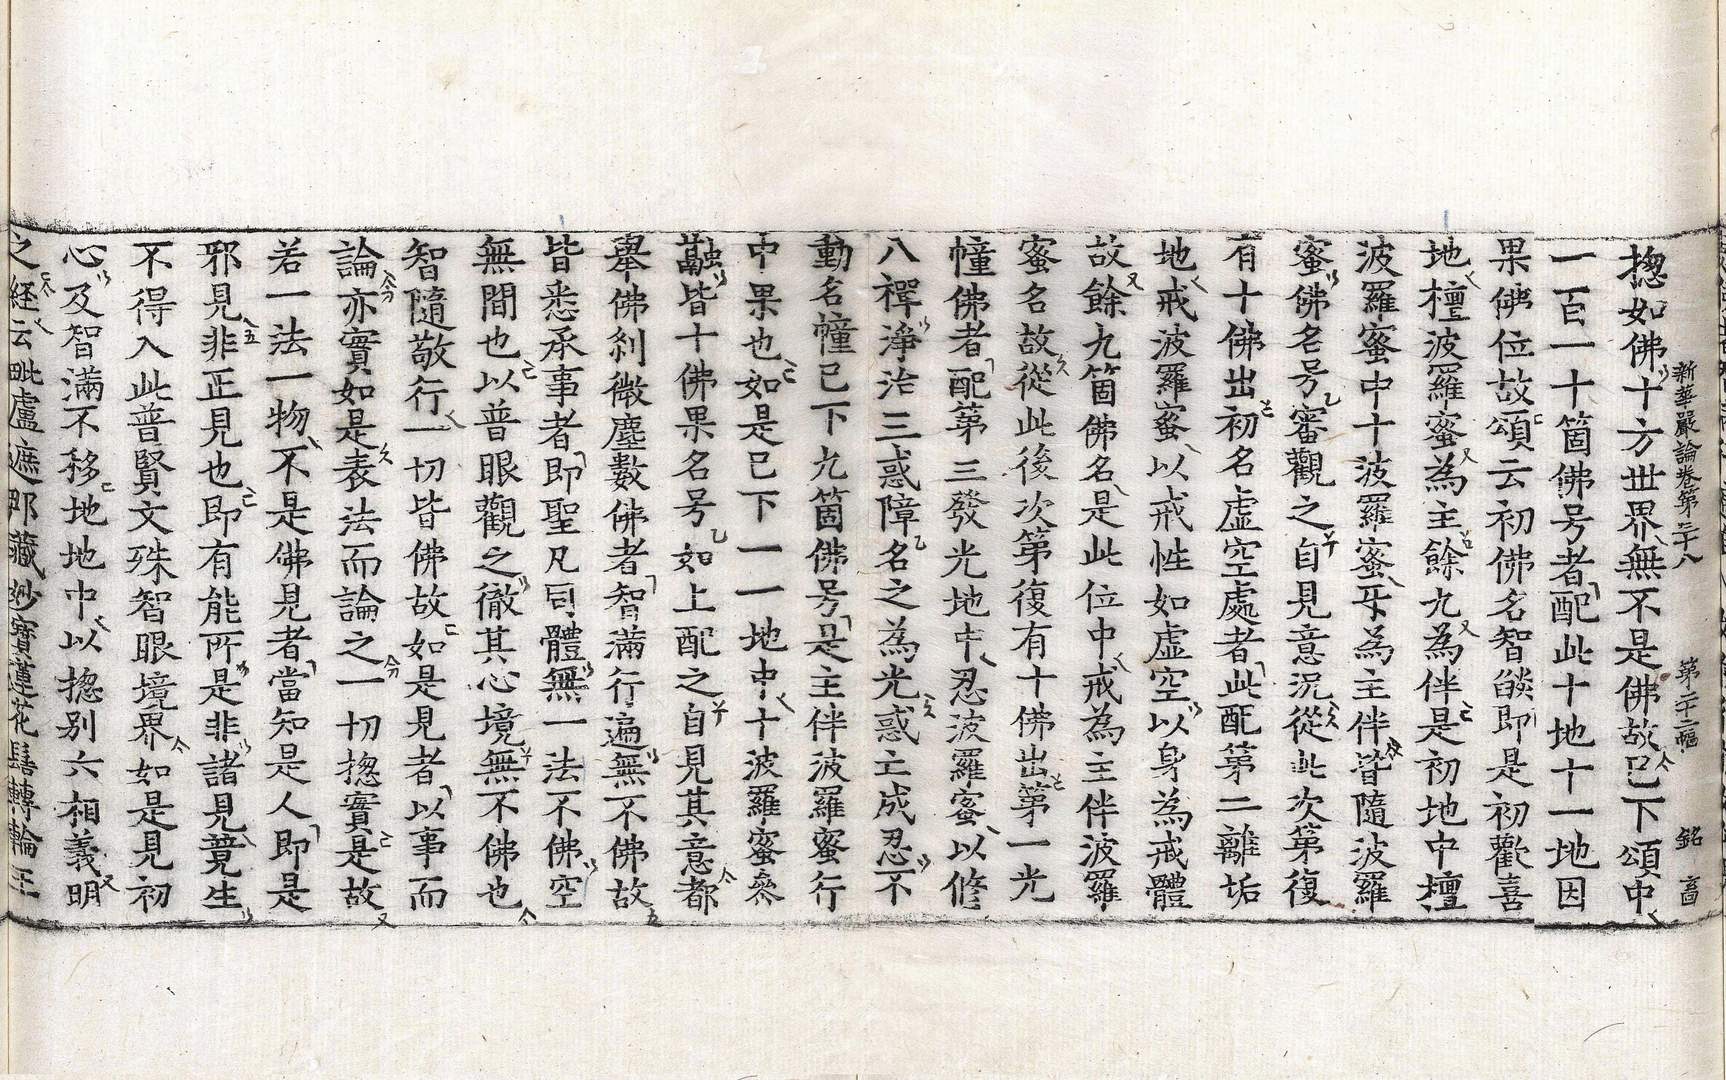 新華嚴論卷第二十八 第二十二幅 銘 畗
揔如佛十方世界無不是佛故已下頌中
一一百一十箇佛号者配此十地十一地因
果佛位故頌云初佛名智燄即是初歡喜
地檀波羅蜜為主餘九為伴是初地中檀
波羅蜜中十波羅蜜㸦為主伴皆隨波羅
蜜佛名号審觀之自見意況從此次第復
有十佛出初名虛空處者此配第二離垢
地戒波羅蜜以戒性如虛空以身為戒體
故餘九箇佛名是此位中戒為主伴波羅
蜜名故從此後次第復有十佛出第一光
幢佛者配第三發光地中忍波羅蜜以修
八禪淨治三惑障名之為光惑亡成忍不
動名幢已下九箇佛号是主伴波羅蜜行
中果也如是已下一一地中十波羅蜜叅
融皆十佛果名号如上配之自見其意都
舉佛剎微塵數佛者智滿行遍無不佛故
皆悉承事者即聖凡同體無一法不佛空
無間也以普眼觀之徹其心境無不佛也
智隨敬行一切皆佛故如是見者以事而
論亦實如是表法而論之一切揔實是故
若一法一物不是佛見者當知是人即是
邪見非正見也即有能所是非諸見競生
不得入此普賢文殊智眼境界如是見初
心及智滿不移地地中以揔别六相義明
之経云毗盧遮那藏妙寶蓮花髻轉輪王